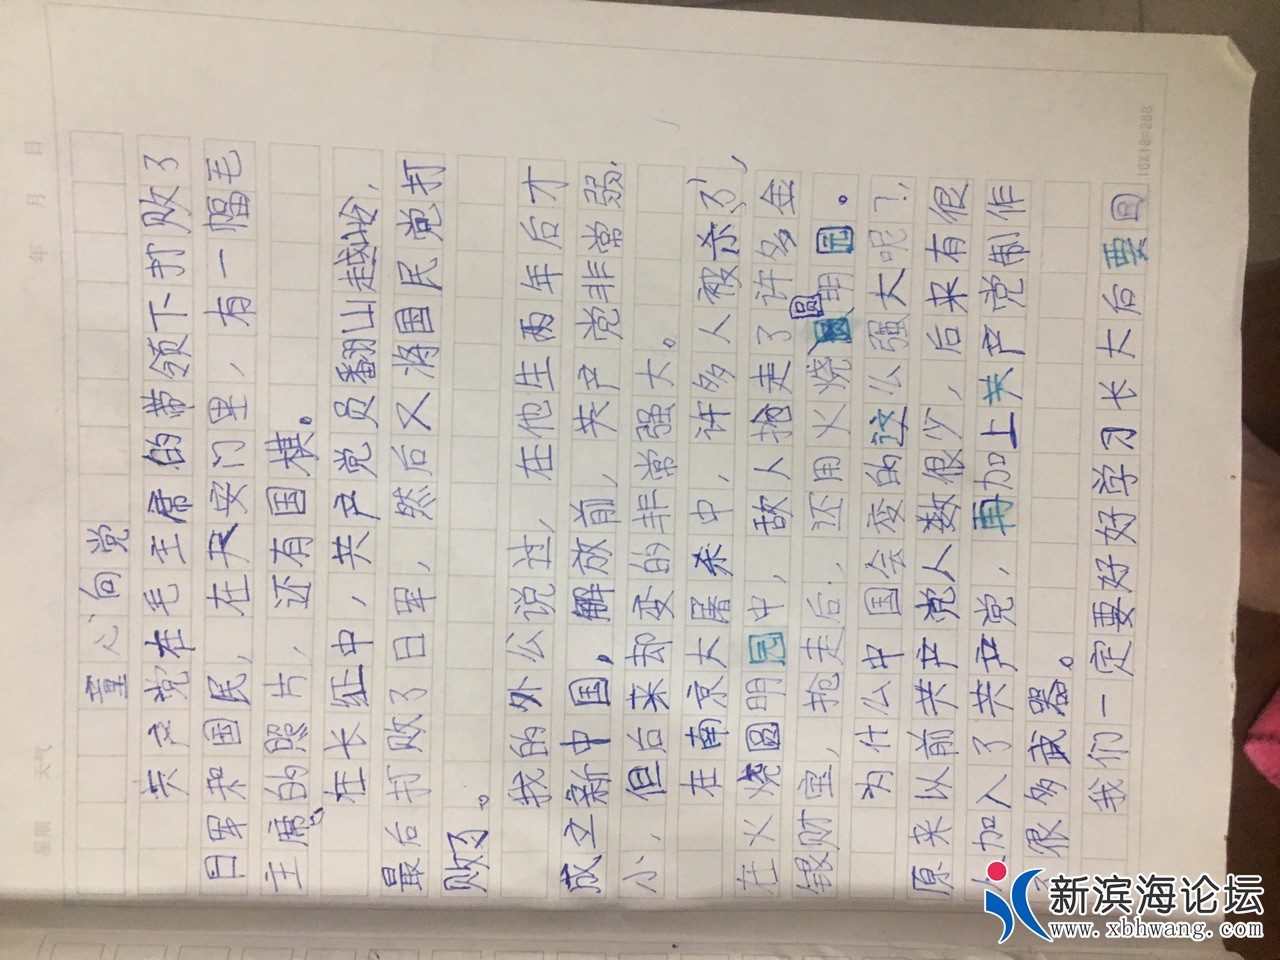 年 月 日
星期 天气
童心向党
共产党在毛主席的带领下打败了
日军和国民，在天安门里，有一幅毛
主席的照片，还有国棋。
在长征中，共产党员翻山越岭，
最后打败了日军，然后又将国民党打
败了。
我的外公说过，在他生两年后才
成立新中国，解放前，共产党非常弱
小，但后来却变的非常强大。
在南京大屠杀中，许多人被杀了，
在火烧圆明园中，敌人抢走了许多金
银财宝，抢走后，还用火烧圆明园。
为什么中国会变的这么强大呢？，
原来以前共产党人数很少，后来有很
加入了共产党，再加上共产党制作
很多武器。
我们一定要好好学习长大后要回
16X18=288
新滨海论坛
www.xbhwang.com